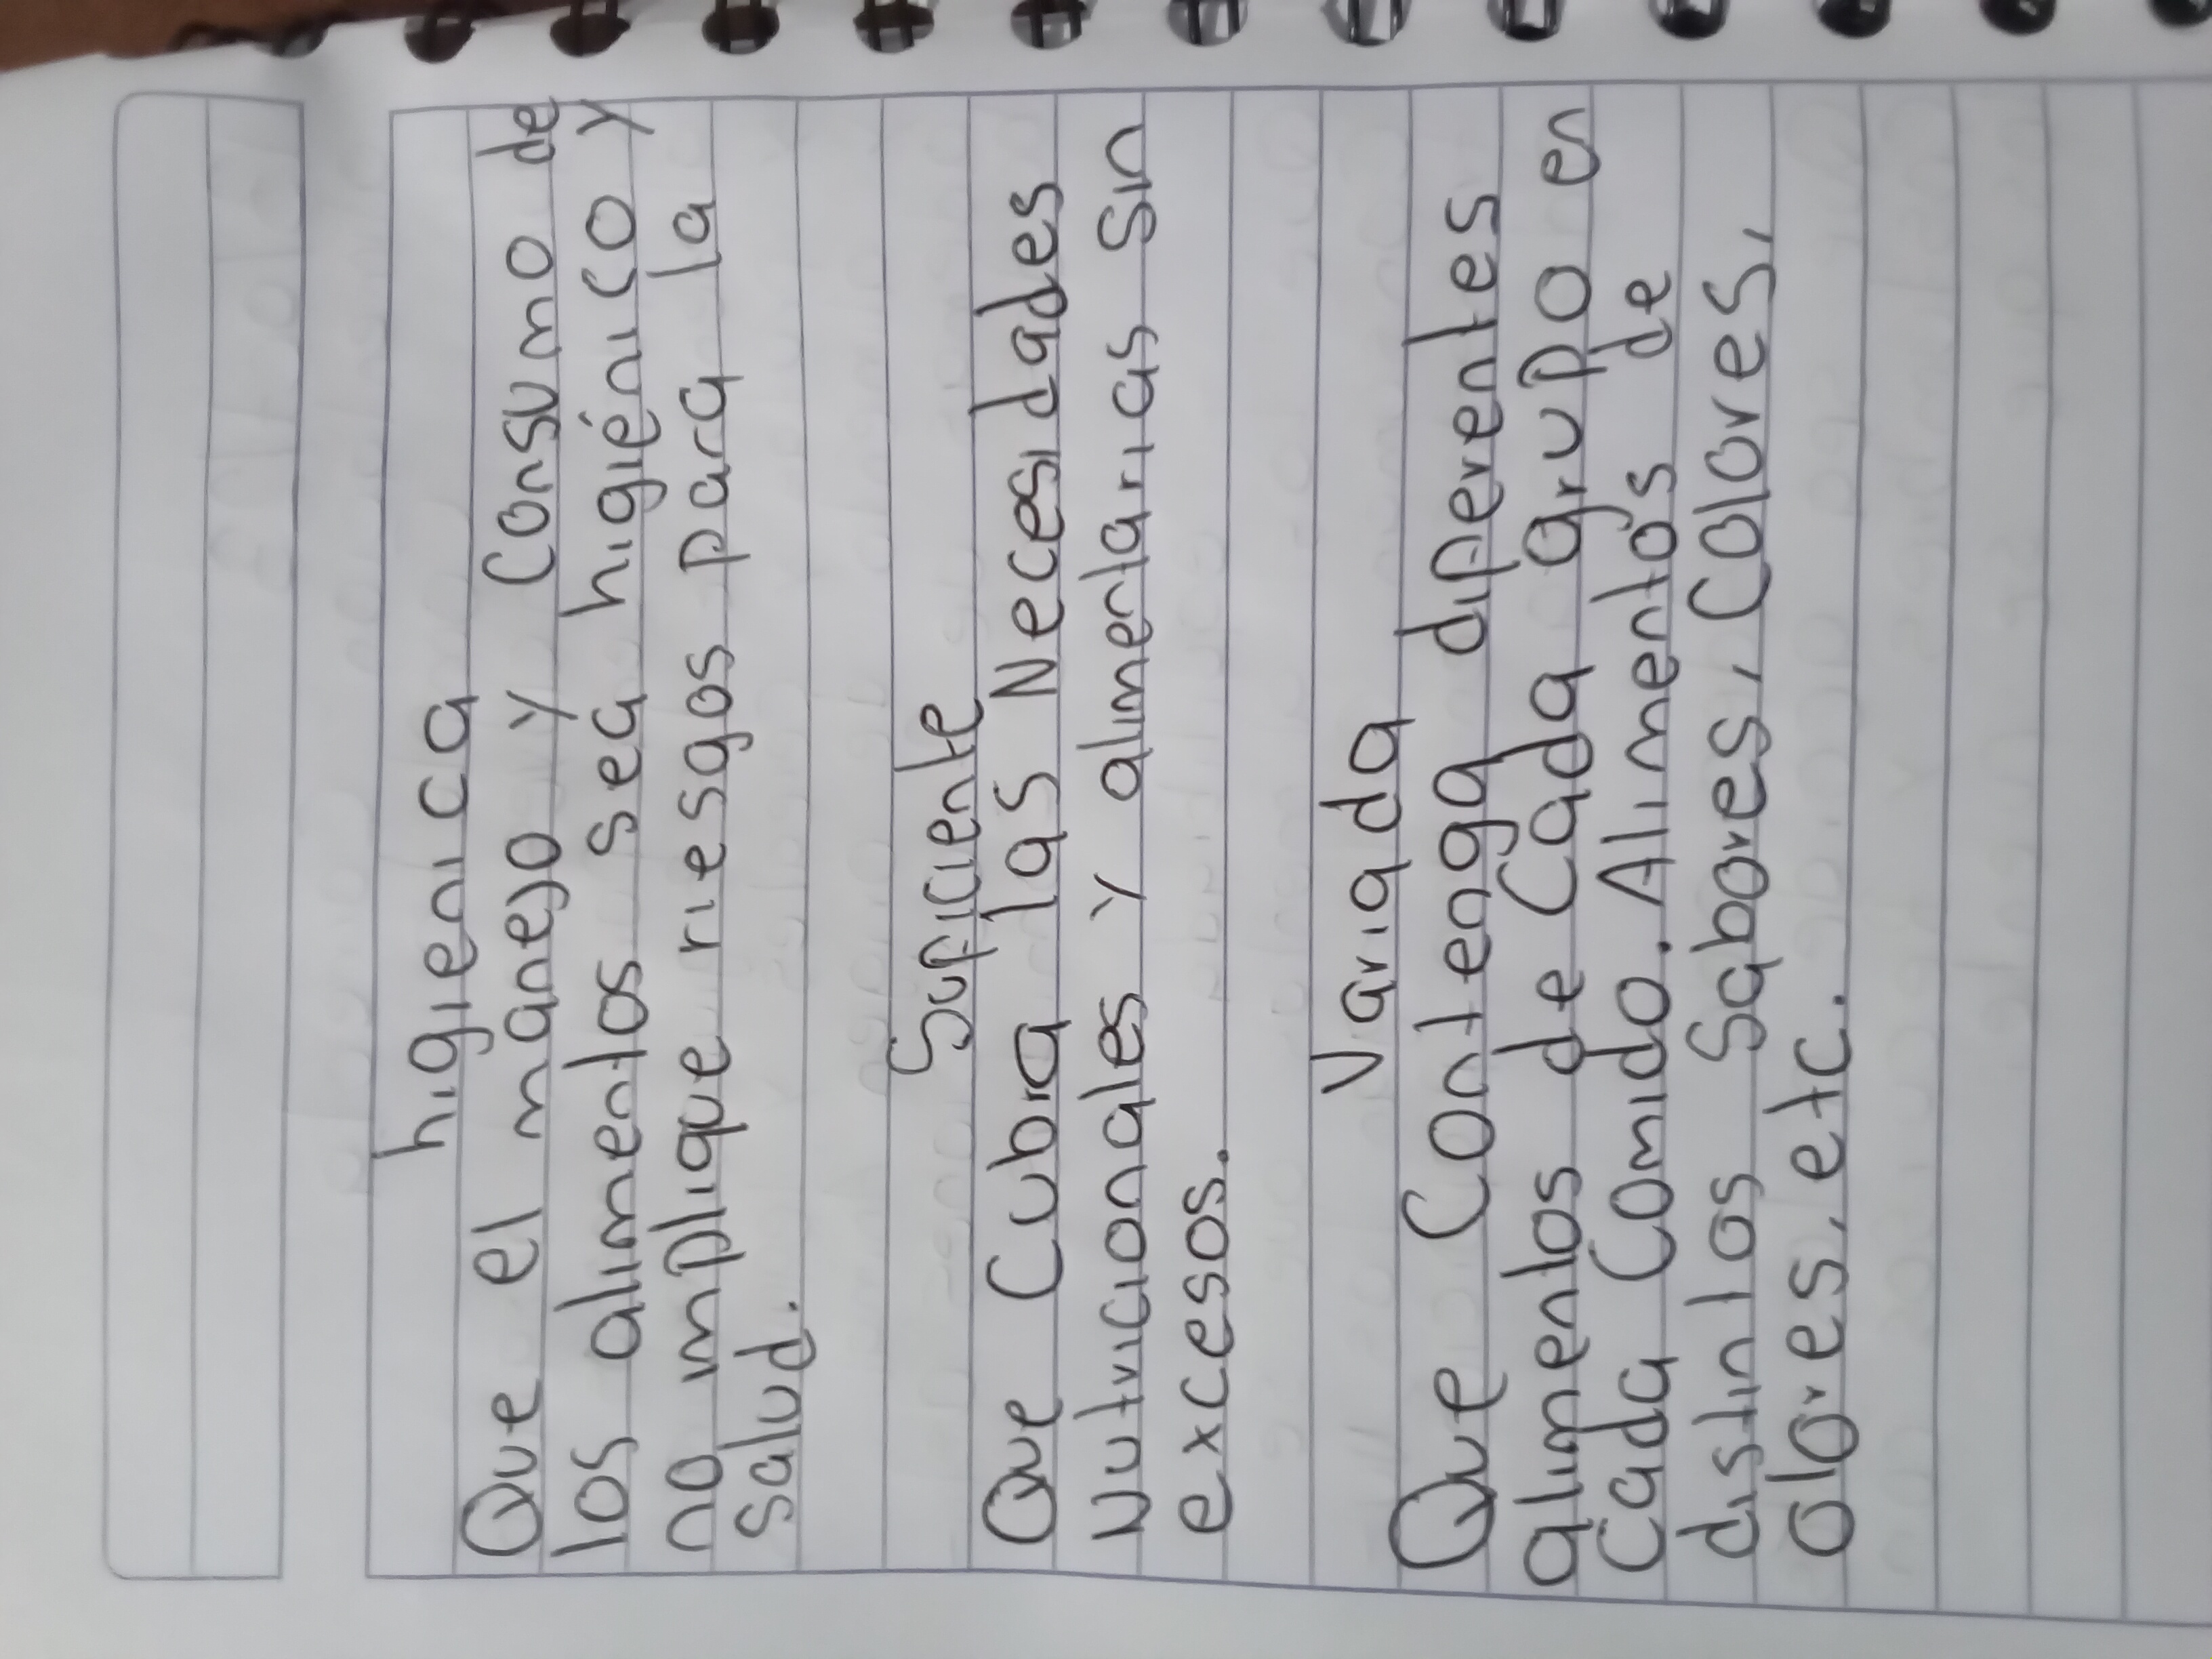 higienica
Que el manejo y Consumo de
los alimentos sea higiénico y
no implique riesgos para la
Salud.
Suficiente
Que Cubra las Necesidades
Nutricionales y alimentarias sin
excesos.
Variada
Que Contenga diferentes
alimentos de Cada grupo en
Cada Comido. Alimentos de
distintos Sabores, Colores,
Olores, etc.